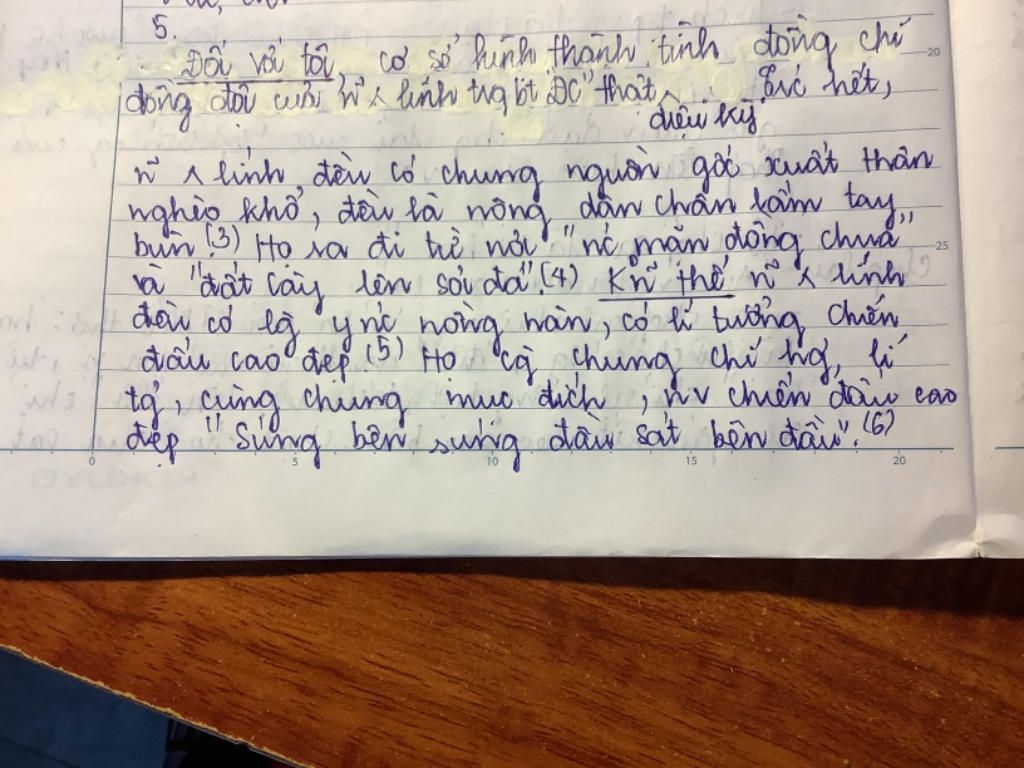 5.
Đối với tôi, cơ sở hình thành tình đồng chí 20
đồng đội của n~ ^ lính trg bt "ĐC" thật ^ Trc hết,
diệu kỳ
n~ ^ lính đều có chung nguồn gốc xuất thân
nghèo khổ, đều là nông dân chân lấm tay
bùn.(3) Họ ra đi từ nơi "nc mặn đồng chua" 25
và "đất cày lên sỏi đá".(4) Không n~ thế n~ ^ lính
đều có lg ync nồng nàn, có lí tưởng chiến
đấu cao đẹp.(5) Họ cg chung chí hg, lí
tg, cùng chung mục đích, nv chiến đấu cao
đẹp "Súng bên súng đầu sát bên đầu".(6)
0 5 10 15 20